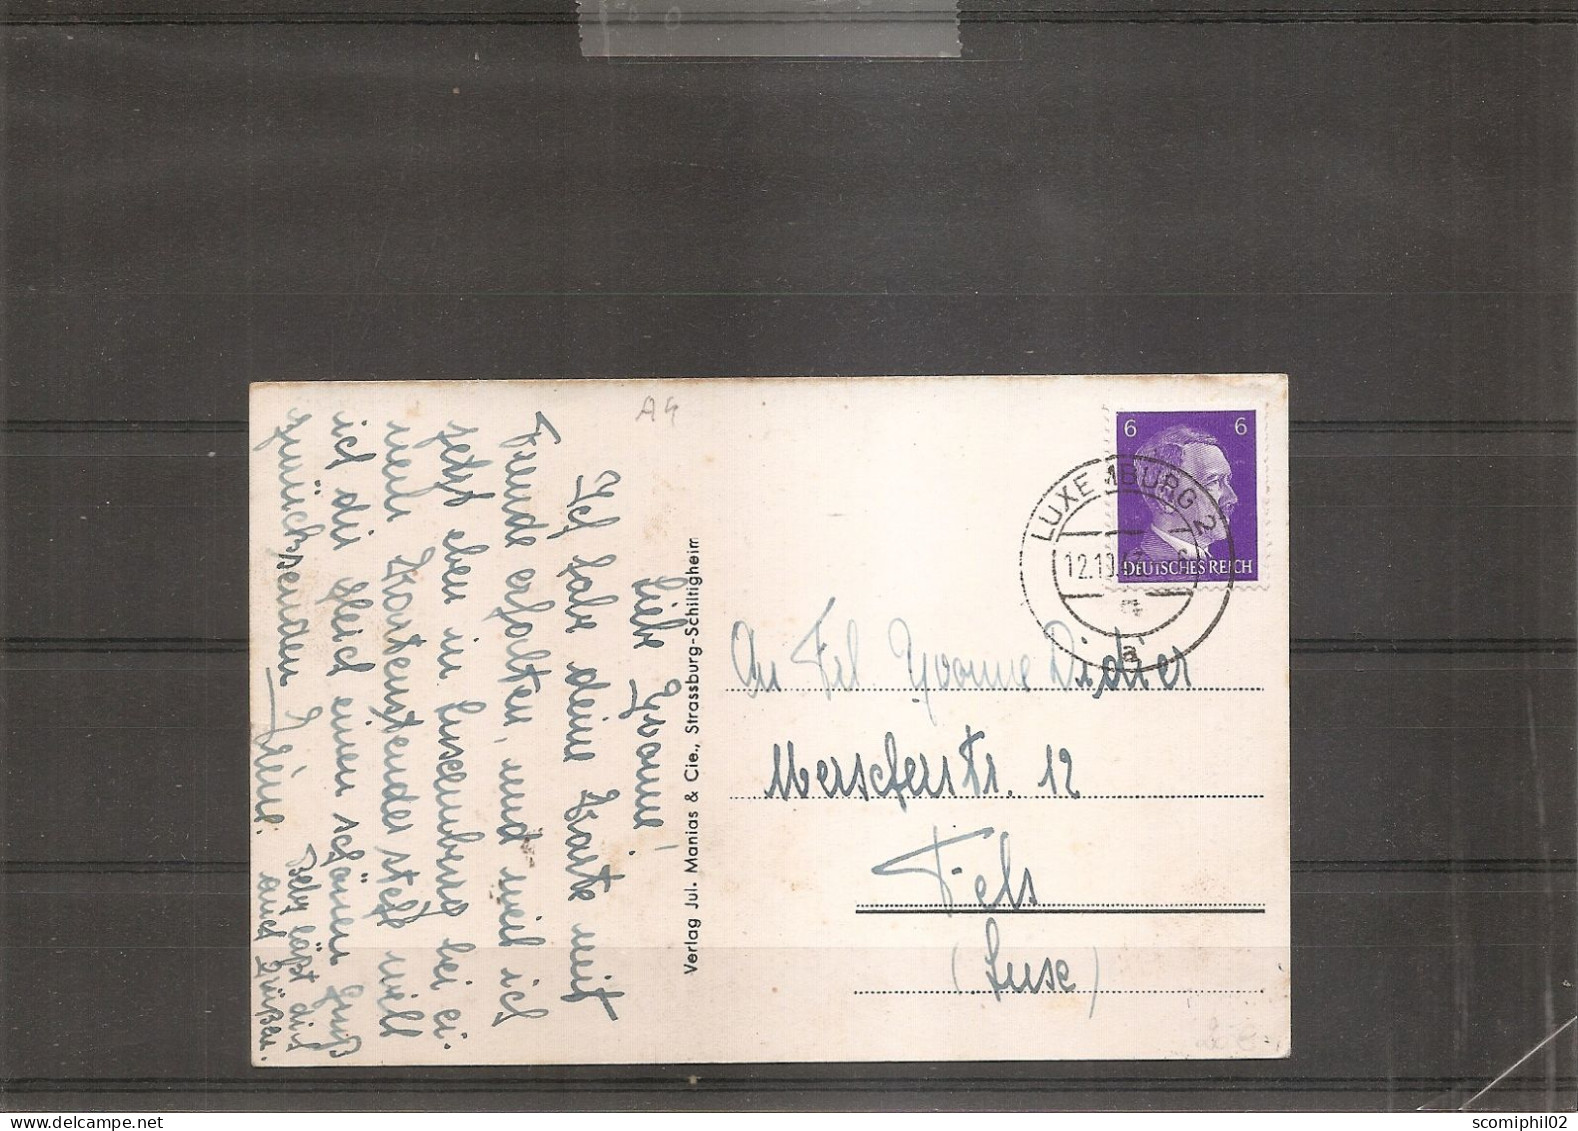 A4
Liebe Yvonne!
Ich habe deine Karte mit
Freude erhalten, und weil ich
jetzt eben in Luxemburg bei ei-
nem Kartenständer steh will
ich dir gleich einen schönen Gruß
zurücksenden
auch Grüßen.
läßt dich
Verlag Jul. Manias & Cie., Strassburg-Schiltigheim
6 6
DEUTSCHES REICH
LUXEMBURG 2
12.10.43
a
An Frl Yvonne Didier
Merscherstr. 12
Fels
(Luxe)
www.delcampe.net
scomiphil02